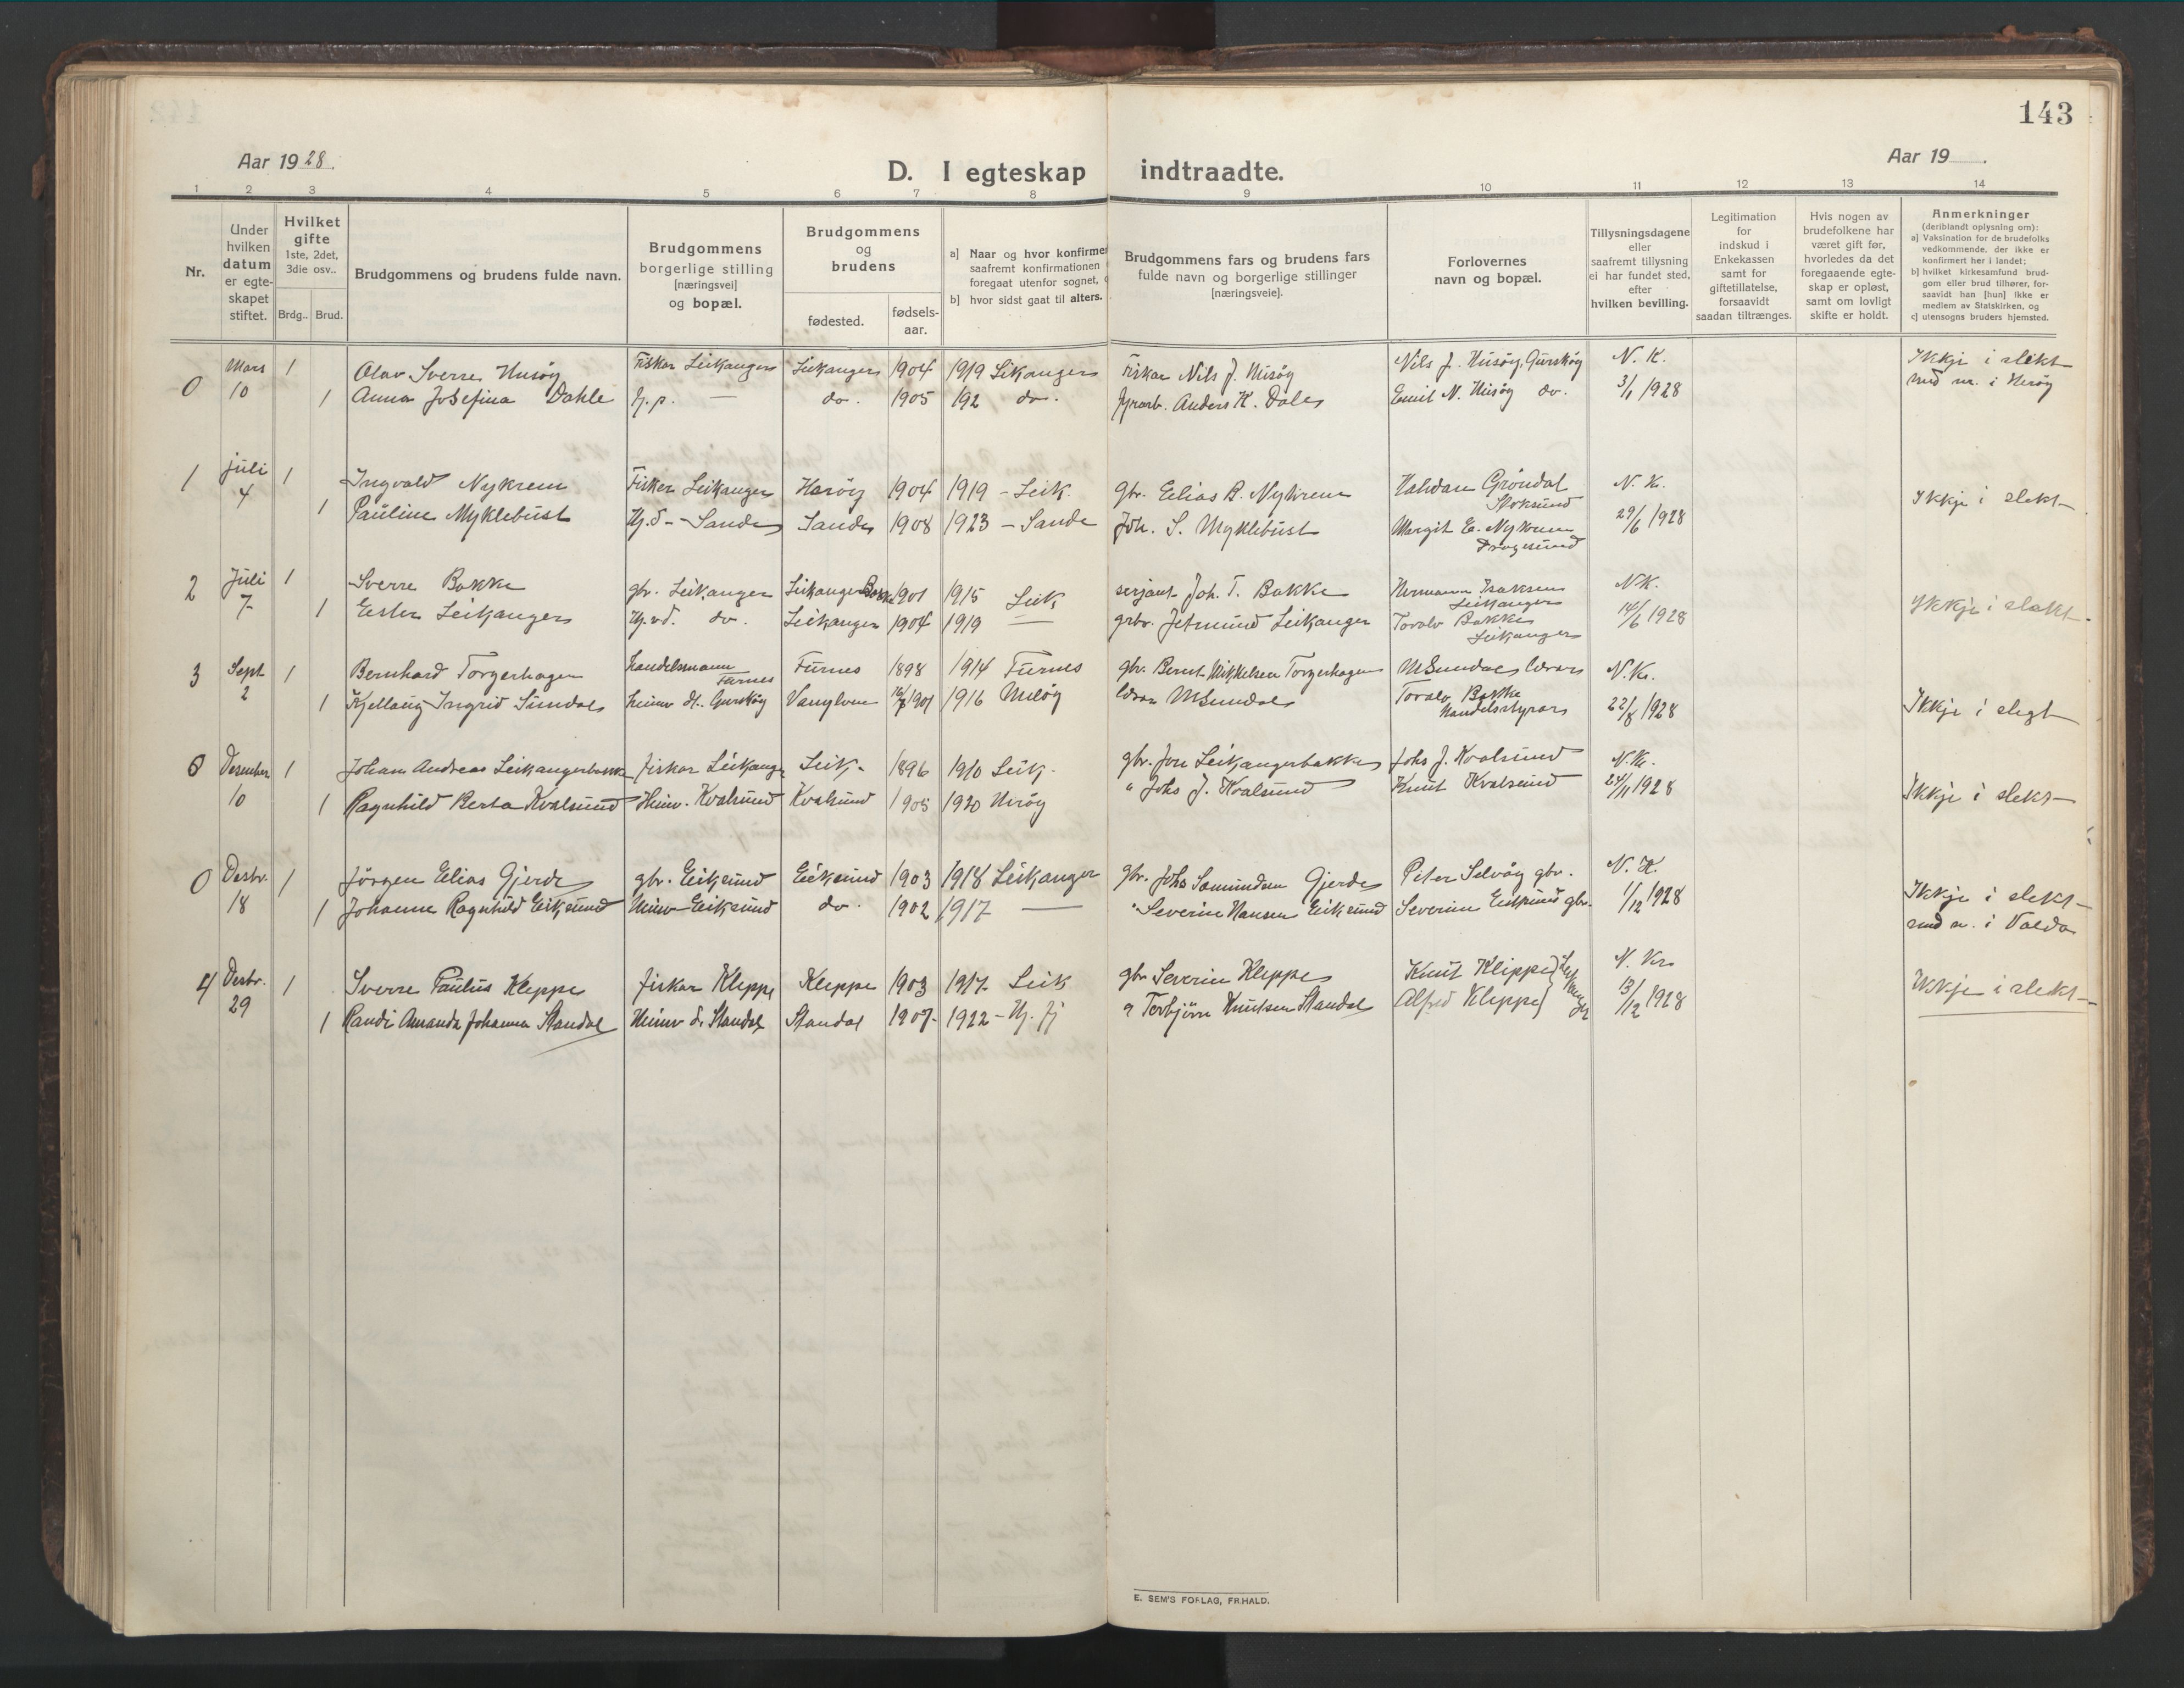 143
Aar 1928.
D. I egteskap indtraadte.
Aar 19 .
1 2 3 4 5 6 7 8 9 10 11 12 13 14
Nr.
Under
hvilken
datum
er egte-
skapet
stiftet.
Hvilket
gifte
1ste, 2det,
3die osv..
Brdg.. Brud.
Brudgommens og brudens fulde navn.
Brudgommens
borgerlige stilling
[næringsvei]
og bopæl.
Brudgommens
og
brudens
fødested.
fødsels-
aar.
a) Naar og hvor konfirmer
saafremt konfirmationen
foregaat utenfor sognet,
b) hvor sidst gaat til alters.
Brudgommens fars og brudens fars
fulde navn og borgerlige stillinger
[næringsveie].
Forlovernes
navn og bopæl.
Tillysningsdagene
eller
saafremt tillysning
ei har fundet sted,
efter
hvilken bevilling.
Legitimation
for
indskud i
Enkekassen
samt for
giftetillatelse,
forsaavidt
saadan tiltrænges.
Hvis nogen av
brudefolkene har
været gift før,
hvorledes da det
foregaaende egte-
skap er opløst,
samt om lovligt
skifte er holdt.
Anmerkninger
(deriblandt oplysning om):
a) Vaksination for de brudefolks
vedkommende, der ikke er
konfirmert her i landet;
b) hvilket kirkesamfund brud-
gom eller brud tilhører, for-
saavidt han [hun] ikke er
medlem av Statskirken, og
c) utensogns bruders hjemsted.
0 Mars 1 Olav Sverre Husöy Fiskar Leikanger Leikanger 1904 1919 Leikanger Fiskar Nils J. Husöy Nils J. Husöy, Gursköy N. K. Ikkje i slekt
10 1 Anna Josefina Dahle h.p. — do. 1905 192 do. Anders K. Dale Emil N. Husöy do. 3/1 1928 i Heröy
1 juli 1 Ingvald Nykrem Fisker Leikanger Haröy 1904 1919 - Leik. gbr. Elias R. Nykrem Halvdan Gröndal N. K. Ikkje i slekt
Stoksund
4 1 Pauline Myklebust Hj.d - Sande Sande 1908 1923 - Sande Joh. S. Myklebust Margit E. Nykrem 29/6 1928
Dragesund
2 Juli 1 Sverre Bakke gbr. Leikanger Leikanger Bakke 1901 1915 Leik serjant Joh. T. Bakke Hermann Isaksen N.K. Ikkje i slekt.
Leikanger
7 1 Ester Leikanger Hj.vd. do. Leikanger 1904 1919 — grbr. Jetmund Leikanger Toralv Bakke 14/6 1928
Leikanger
3 Sept 1 Bernhard Torgerhagen handelsmann Furnes Furnes 1898 1914 Furnes gbr. Bernt Mikkelsen Torgerhagen M Sundal lærar N.K.
2 1 Kjellaug Ingrid Sundal heimv d. Gursköy Vanylven 1901 1916 Heröy lærar M Sundal Toralv Bakke 22/8 1928 Ikkje i slegt
Handelsstyrar
0 Desember 1 Johan Andreas Leikangerbakke fiskar Leikanger Leik. 1896 1910 Leik. gbr. Jon Leikangerbakke Johs J. Kvalsund N.K.
10 1 Ragnhild Berta Kvalsund Heimv. Kvalsund Kvalsund 1905 1920 Heröy " Johs J. Kvalsund Knut Kvalsund 24/11 1928 Ikkje i slekt
0 Desbr. 1 Jörgen Elias Gjerde gbr. Eiksund Eiksund 1903 1918 Leikanger gbr. Johs Samundsen Gjerde Peter Selvåg gbr. N. K. Ikkje i slekt
18 1 Johanne Ragnhild Eiksund Heimv Eiksund do. 1902 1917 — " Severin Hansen Eiksund Severin Eiksund gbr. 1/12 1928 i Volda
4 Desbr. 1 Sverre Paulus Kleppe fiskar Kleppe Kleppe 1903 1917 Leik gbr Severin Kleppe Knut Kleppe N. K. Ikkje i slekt
29 1 Randi Amanda Johanna Standal Heimv d. Standal Standal 1907 1922 - Hj. fj " Torbjörn Knutsen Standal Alfred Kleppe 13/12 1928
E. SEM'S FORLAG, FR.HALD.